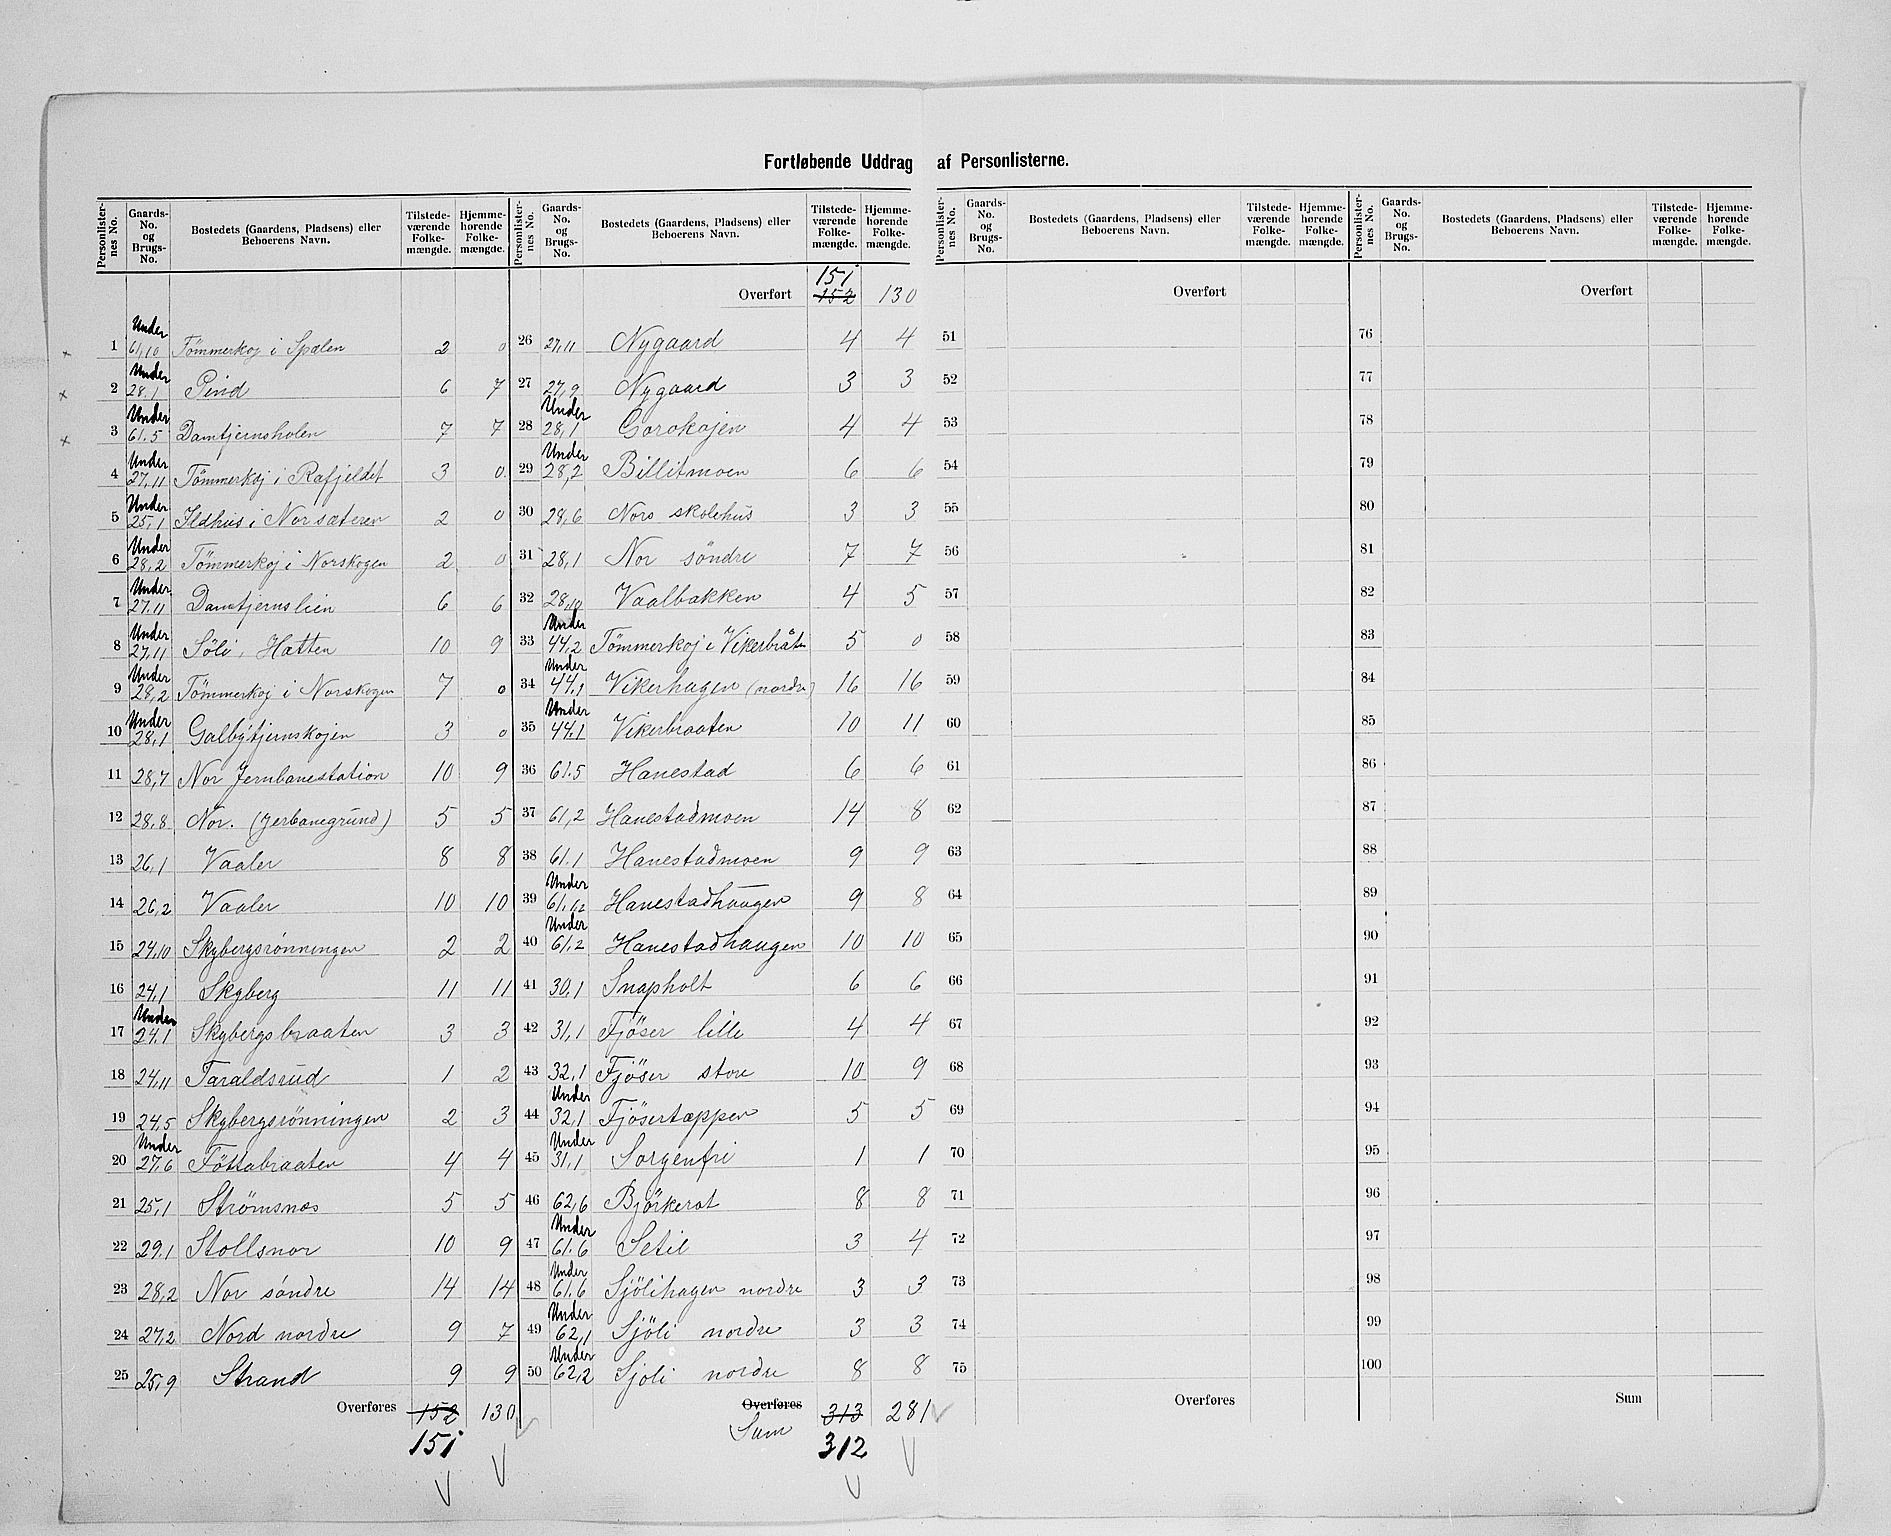 Fortløbende Uddrag af Personlisterne.
Personlister-nes No. | Gaards-No. og Brugs-No. | Bostedets (Gaardens, Pladsens) eller Beboerens Navn. | Tilstede-værende Folke-mængde. | Hjemme-hørende Folke-mængde.
1 Under 61,10 Tømmerkoj i Spælen 2 0
2 Under 28,1 Pind 6 7
3 Under 61.5 Damtjernsholen 7 7
4 Under 27,11 Tømmerkoj i Rafjeldet 3 0
5 Under 25,1 Ildhus i Nor sæteren 2 0
6 Under 28,2 Tømmerkoj i Norskogen 2 0
7 Under 27.11 Damtjernslien 6 6
8 Under 27,11 Söli, Hatten 10 9
9 Under 28,2 Tømmerkoj i Norskogen 7 0
10 Under 28,1 Galbytjernskojen 3 0
11 28,7 Nor Jernbanestation 10 9
12 28,8 Nor. (Jerbanegrund) 5 5
13 26,1 Vaaler 8 8
14 26,2 Vaaler 10 10
15 24,10 Skybergsrønningen 2 2
16 24,1 Skyberg 11 11
17 Under 24.1 Skybergsbraaten 3 3
18 24,11 Taraldsrud 1 2
19 24,5 Skybergsrønningen 2 3
20 Under 27,6 Föttabraaten 4 4
21 25,1 Strømsnes 5 5
22 29,1 Stollsnor 10 9
23 28,2 Nor söndre 14 14
24 27,2 Nord nordre 9 7
25 25,9 Strand 9 9
Overføres 152 130
151
Personlister-nes No. | Gaards-No. og Brugs-No. | Bostedets (Gaardens, Pladsens) eller Beboerens Navn. | Tilstede-værende Folke-mængde. | Hjemme-hørende Folke-mængde.
151
Overført 152 130
26 27,11 Nygaard 4 4
27 27,9 Nygaard 3 3
28 Under 28,1 Gorokojen 4 4
29 Under 28,2 Billitmoen 6 6
30 28,6 Nors skolehus 3 3
31 28,1 Nor söndre 7 7
32 28,10 Vaalbakken 4 5
33 Under 44,2 Tømmerkoj i Vikerbråtn 5 0
34 Under 44,1 Vikerhagen (nordre) 16 16
35 Under 44,1 Vikerbraaten 10 11
36 61.5 Hanestad 6 6
37 61,2 Hanestadmoen 14 8
38 61.1 Hanestadmoen 9 9
39 Under 61,12 Hanestadhaugen 9 8
40 Under 61.2 Hanestadhaugen 10 10
41 30,1 Snapholt 6 6
42 31,1 Fjöser lille 4 4
43 32,1 Fjöser store 10 9
44 Under 32,1 Fjösertæppen 5 5
45 Under 31,1 Sorgenfri 1 1
46 62,6 Björkerot 8 8
47 Under 61.6 Setil 3 4
48 Under 61.6 Sjölihagen nordre 3 3
49 Under 62,1 Sjöli nordre 3 3
50 Under 62,2 Sjöli nordre 8 8
Overføres 313 281
Sum 312
Personlister-nes No. | Gaards-No. og Brugs-No. | Bostedets (Gaardens, Pladsens) eller Beboerens Navn. | Tilstede-værende Folke-mængde. | Hjemme-hørende Folke-mængde.
Overført
51
52
53
54
55
56
57
58
59
60
61
62
63
64
65
66
67
68
69
70
71
72
73
74
75
Overføres
Personlister-nes No. | Gaards-No. og Brugs-No. | Bostedets (Gaardens, Pladsens) eller Beboerens Navn. | Tilstede-værende Folke-mængde. | Hjemme-hørende Folke-mængde.
Overført
76
77
78
79
80
81
82
83
84
85
86
87
88
89
90
91
92
93
94
95
96
97
98
99
100
Sum